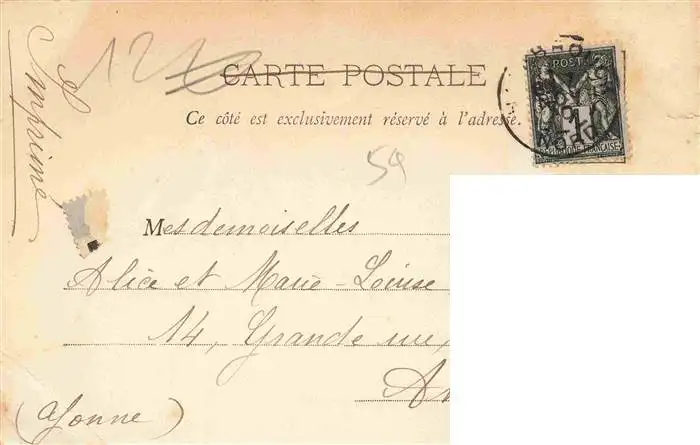 Imprimé
CARTE POSTALE
Ce côté est exclusivement réservé à l'adresse.
POST
1
RÉPUBLIQUE FRANÇAISE
54
Mesdemoiselles
Alice et Marie-Louise
14, Grande rue,
(Yonne)